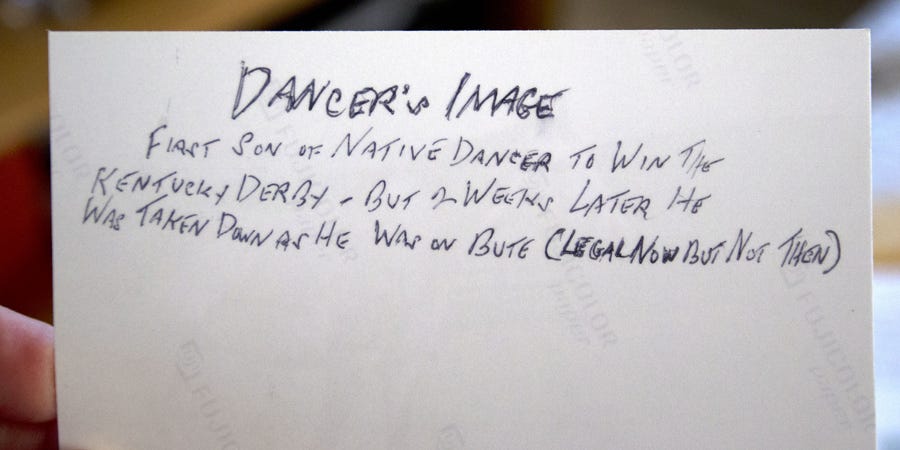 DANCER'S IMAGE
FIRST SON OF NATIVE DANCER TO WIN THE
KENTUCKY DERBY - BUT 2 WEEKS LATER HE
WAS TAKEN DOWN AS HE WAS ON BUTE (LEGAL NOW BUT NOT THEN)
FUJICOLOR
paper
FUJICOLOR
paper